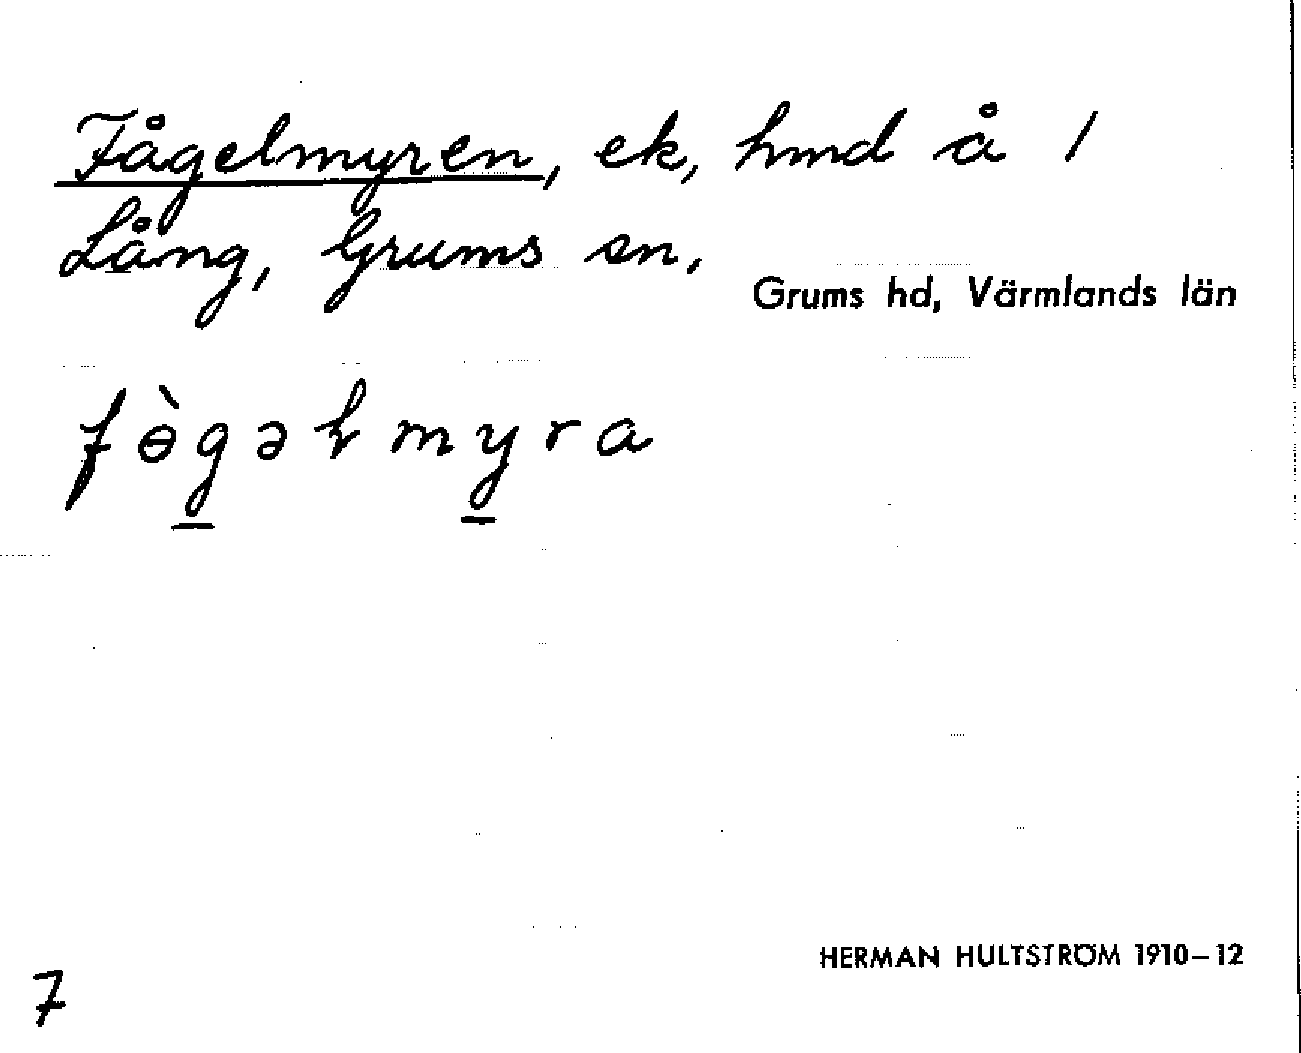 Fågelmyren, ek, hmd å 1
Lång, Grums sn,
Grums hd, Värmlands län
fɵ̀gəɽmyra
HERMAN HULTSTRÖM 1910–12
7